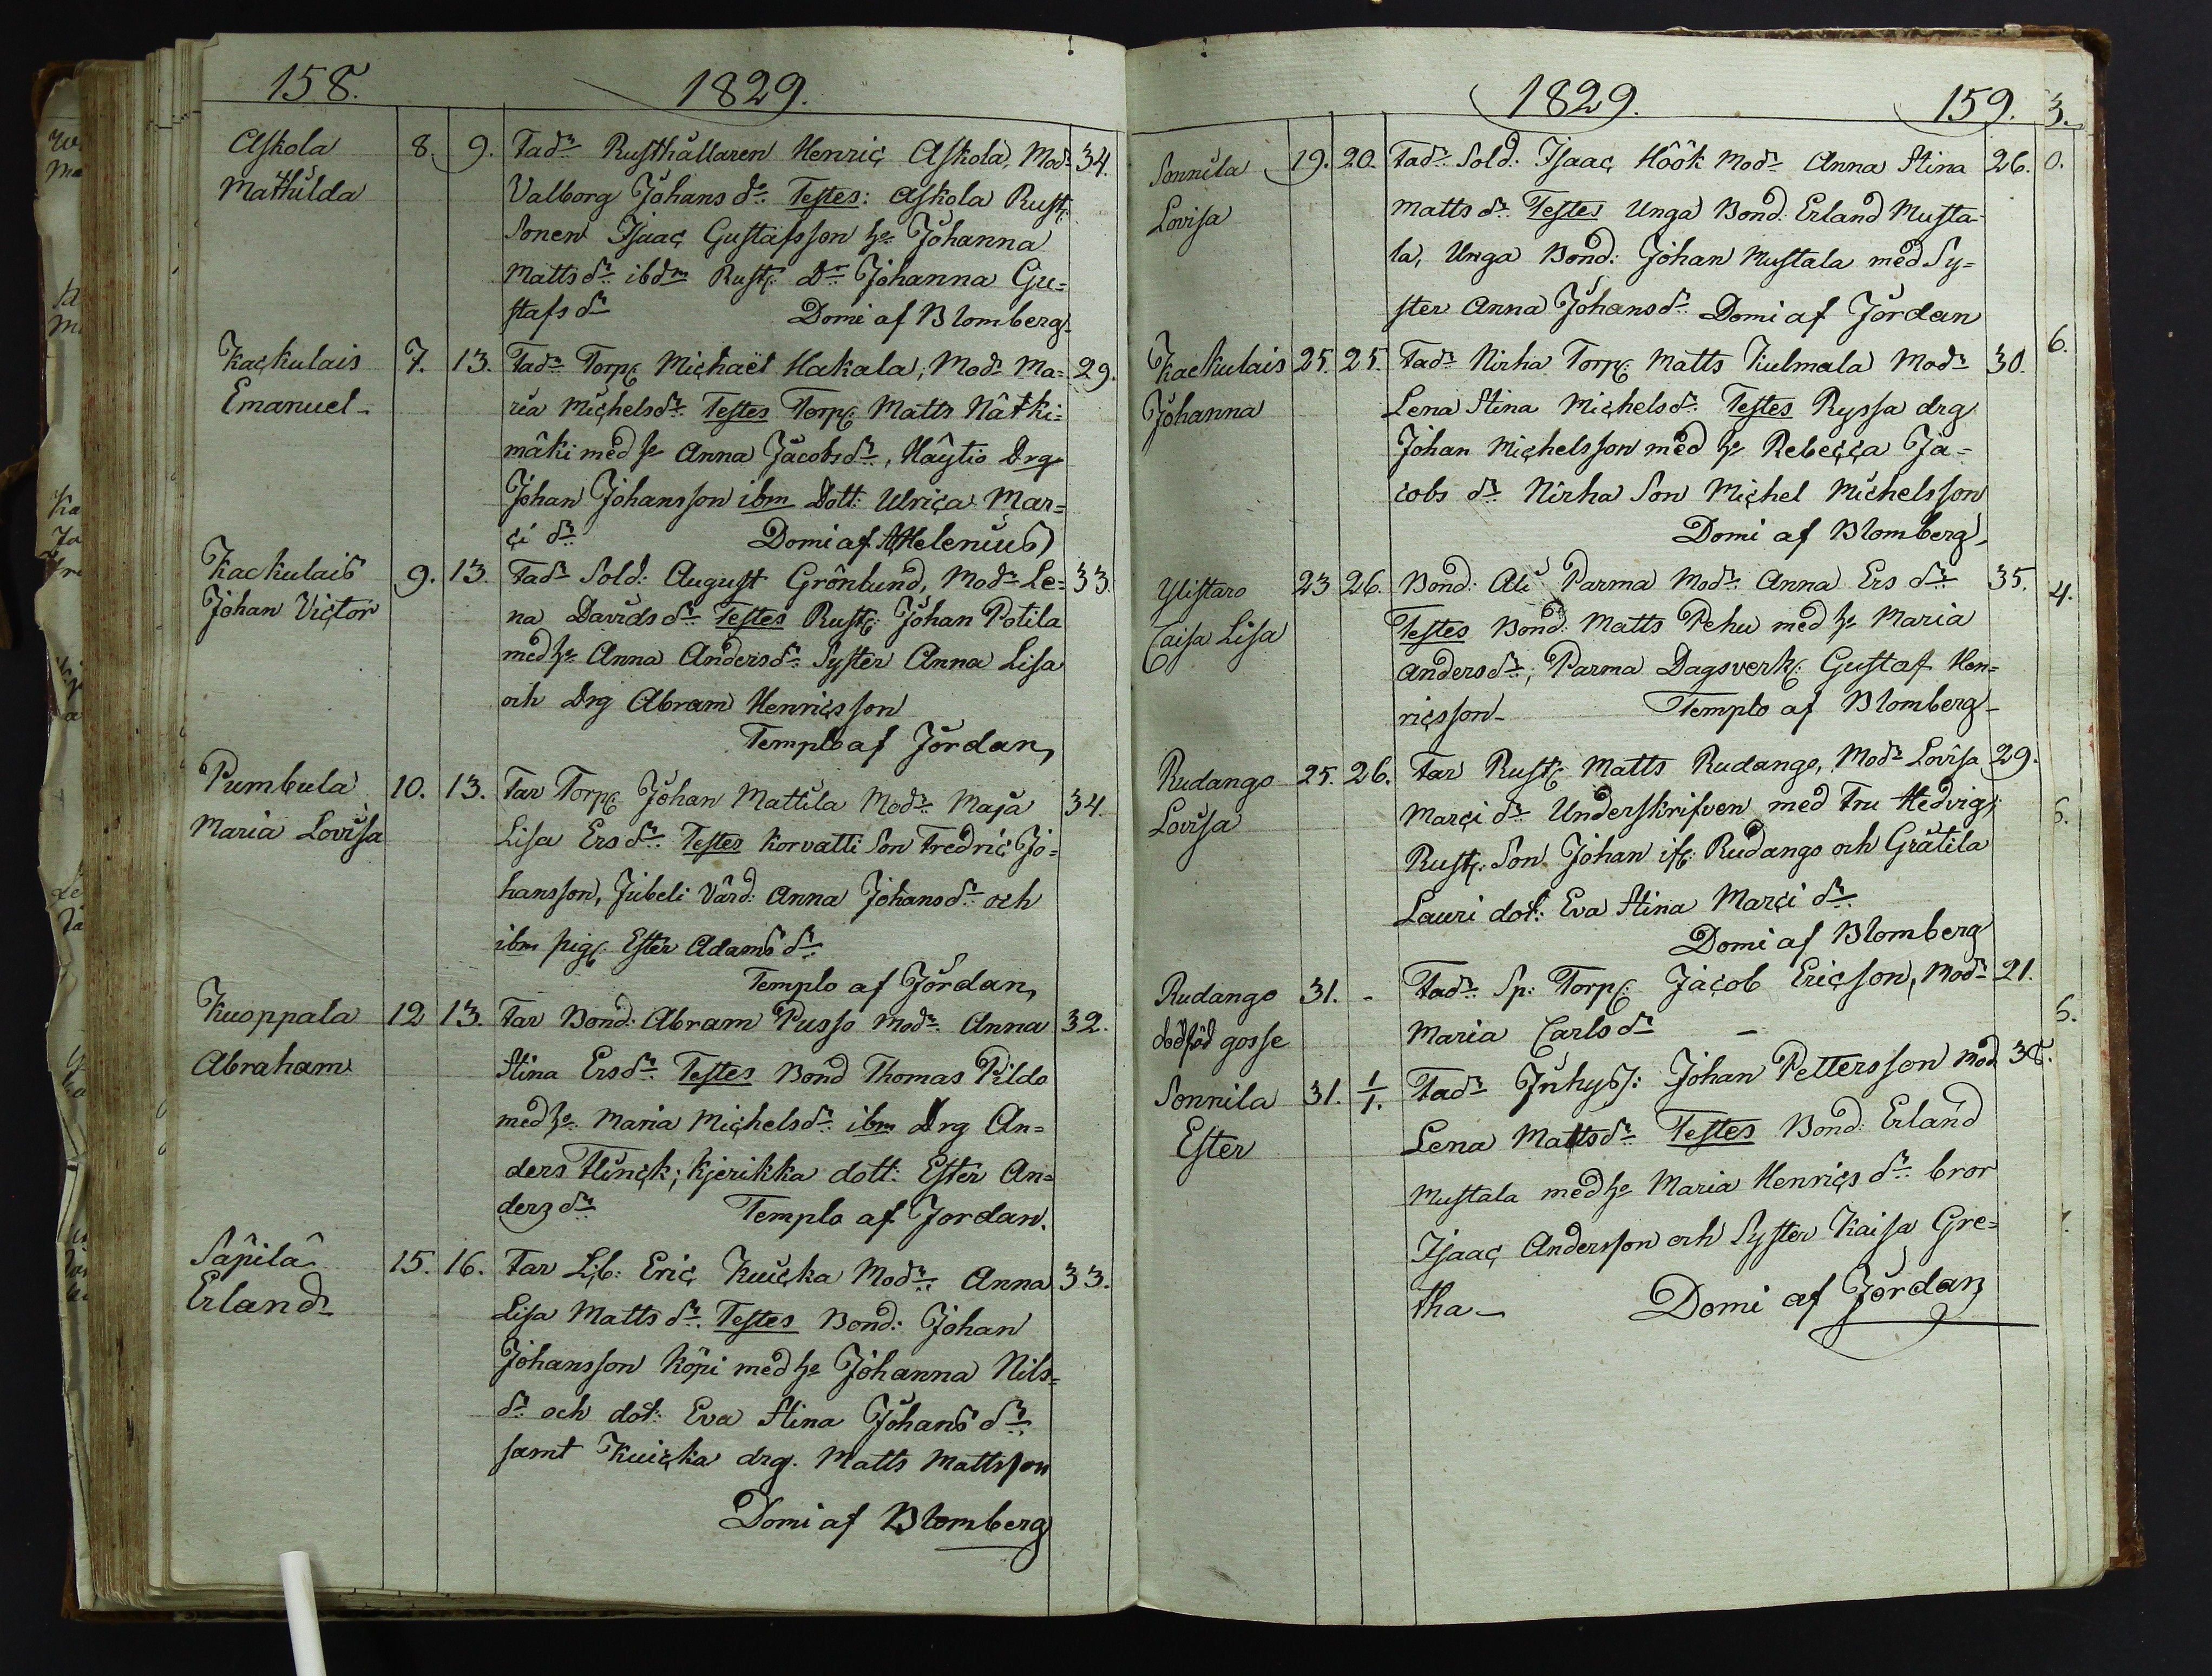 158. 1829.
Askola 8. 9. Fadr Rusthållaren Henric Askola, Modr 34.
Mathilda Valborg Johans dr Testes: Askola Rusth:
Sonen Isaac Gustafsson hr Johanna
Matts dr ibdm Rusth: Dr Johanna Gu=
stafs dr Domi af Blomberg
Kackulais 7. 13. Fadr Torp: Michaël Hakala, Modr Ma= 29.
Emanuel ria Michelsdr Testes Torp: Matts Nätki=
mäki med hr Anna Jacobsdr, Häytiö Drg
Johan Johansson ibm Dott: Ulrica Mar=
ci dr Domi af Helenius
Kackulais 9. 13. Fadr Sold: August Grönlund, Modr Le= 33.
Johan Victor na Davidsdr Testes Rusth: Johan Potila
med hr Anna Andersdr Syster Anna Lisa
och Drg Abram Henricsson
Templo af Jordan
Pumbula 10. 13. Far Torp: Johan Mattila Modr Maja 34.
Maria Lovisa Lisa Ersdr Testes Korvatti Son Fredric Jo=
hansson, Jubeli Värd: Anna Johansdr och
ibm pig: Ester Adams dr
Templo af Jordan
Kuoppala 12 13. Far Bond: Abram Pusso Modr Anna 32.
Abraham Stina Ersdr Testes Bond Thomas Pildo
med hr Maria Michelsdr ibm Drg An=
ders Flinck; Kjerikka dott: Ester An=
dersdr Templo af Jordan.
Säpilä 15. 16. Far Lib: Eric Kuicka Modr Anna 33.
Erland Lisa Matts dr Testes Bond: Johan
Johansson Köpi med hr Johanna Nils=
dr och dot: Eva Stina Johans dr
samt Kuicka drg. Matts Mattsson
Domi af Blomberg
1829. 159. 3.
Sonnila 19. 20. Fadr Sold: Isaac Höök Modr Anna Stina 26. 0.
Lovisa Matts dr Testes Unga Bond: Erland Musta=
la, Unga Bond: Johan Mustala med Sy=
ster Anna Johansdr Domi af Jordan
Kackulais 25. 25. Fadr Nirha Torp: Matts Kulmala Modr 30. 6.
Johanna Lena Stina Michelsdr Testes Ryssa drg
Johan Michelsson med hr Rebecca Ja=
cobs dr Nirha Son Michel Michelsson
Domi af Blomberg
Ylistaro 23 26. Bond: Ali Parma Modr Anna Ers dr 35. 4.
Caisa Lisa Testes Bond: Matts Pehu med hr Maria
Andersdr; Parma Dagsverk: Gustaf Hen=
ricsson Templo af Blomberg
Rudango 25. 26. Far Rust: Matts Rudango, Modr Lovisa 29.
Lovisa Marci dr Underskrifven med Fru Hedvig; 6.
Rust: Son Johan if: Rudango och Grätila
Lauri dot: Eva Stina Marci dr
Domi af Blomberg
Rudango 31. - Fadr Sp: Torp: Jacob Ericson, Modr 21.
dödföd gosse Maria Carls dr - 5.
Sonnila 31. 1/1. Fadr Inhys: Johan Pettersson Mod 38.
Ester Lena Mattsdr Testes Bond: Erland
Mustala med hr Maria Henrics dr bror
Isaac Andersson och Syster Kaisa Gre=
tha Domi af Jordan